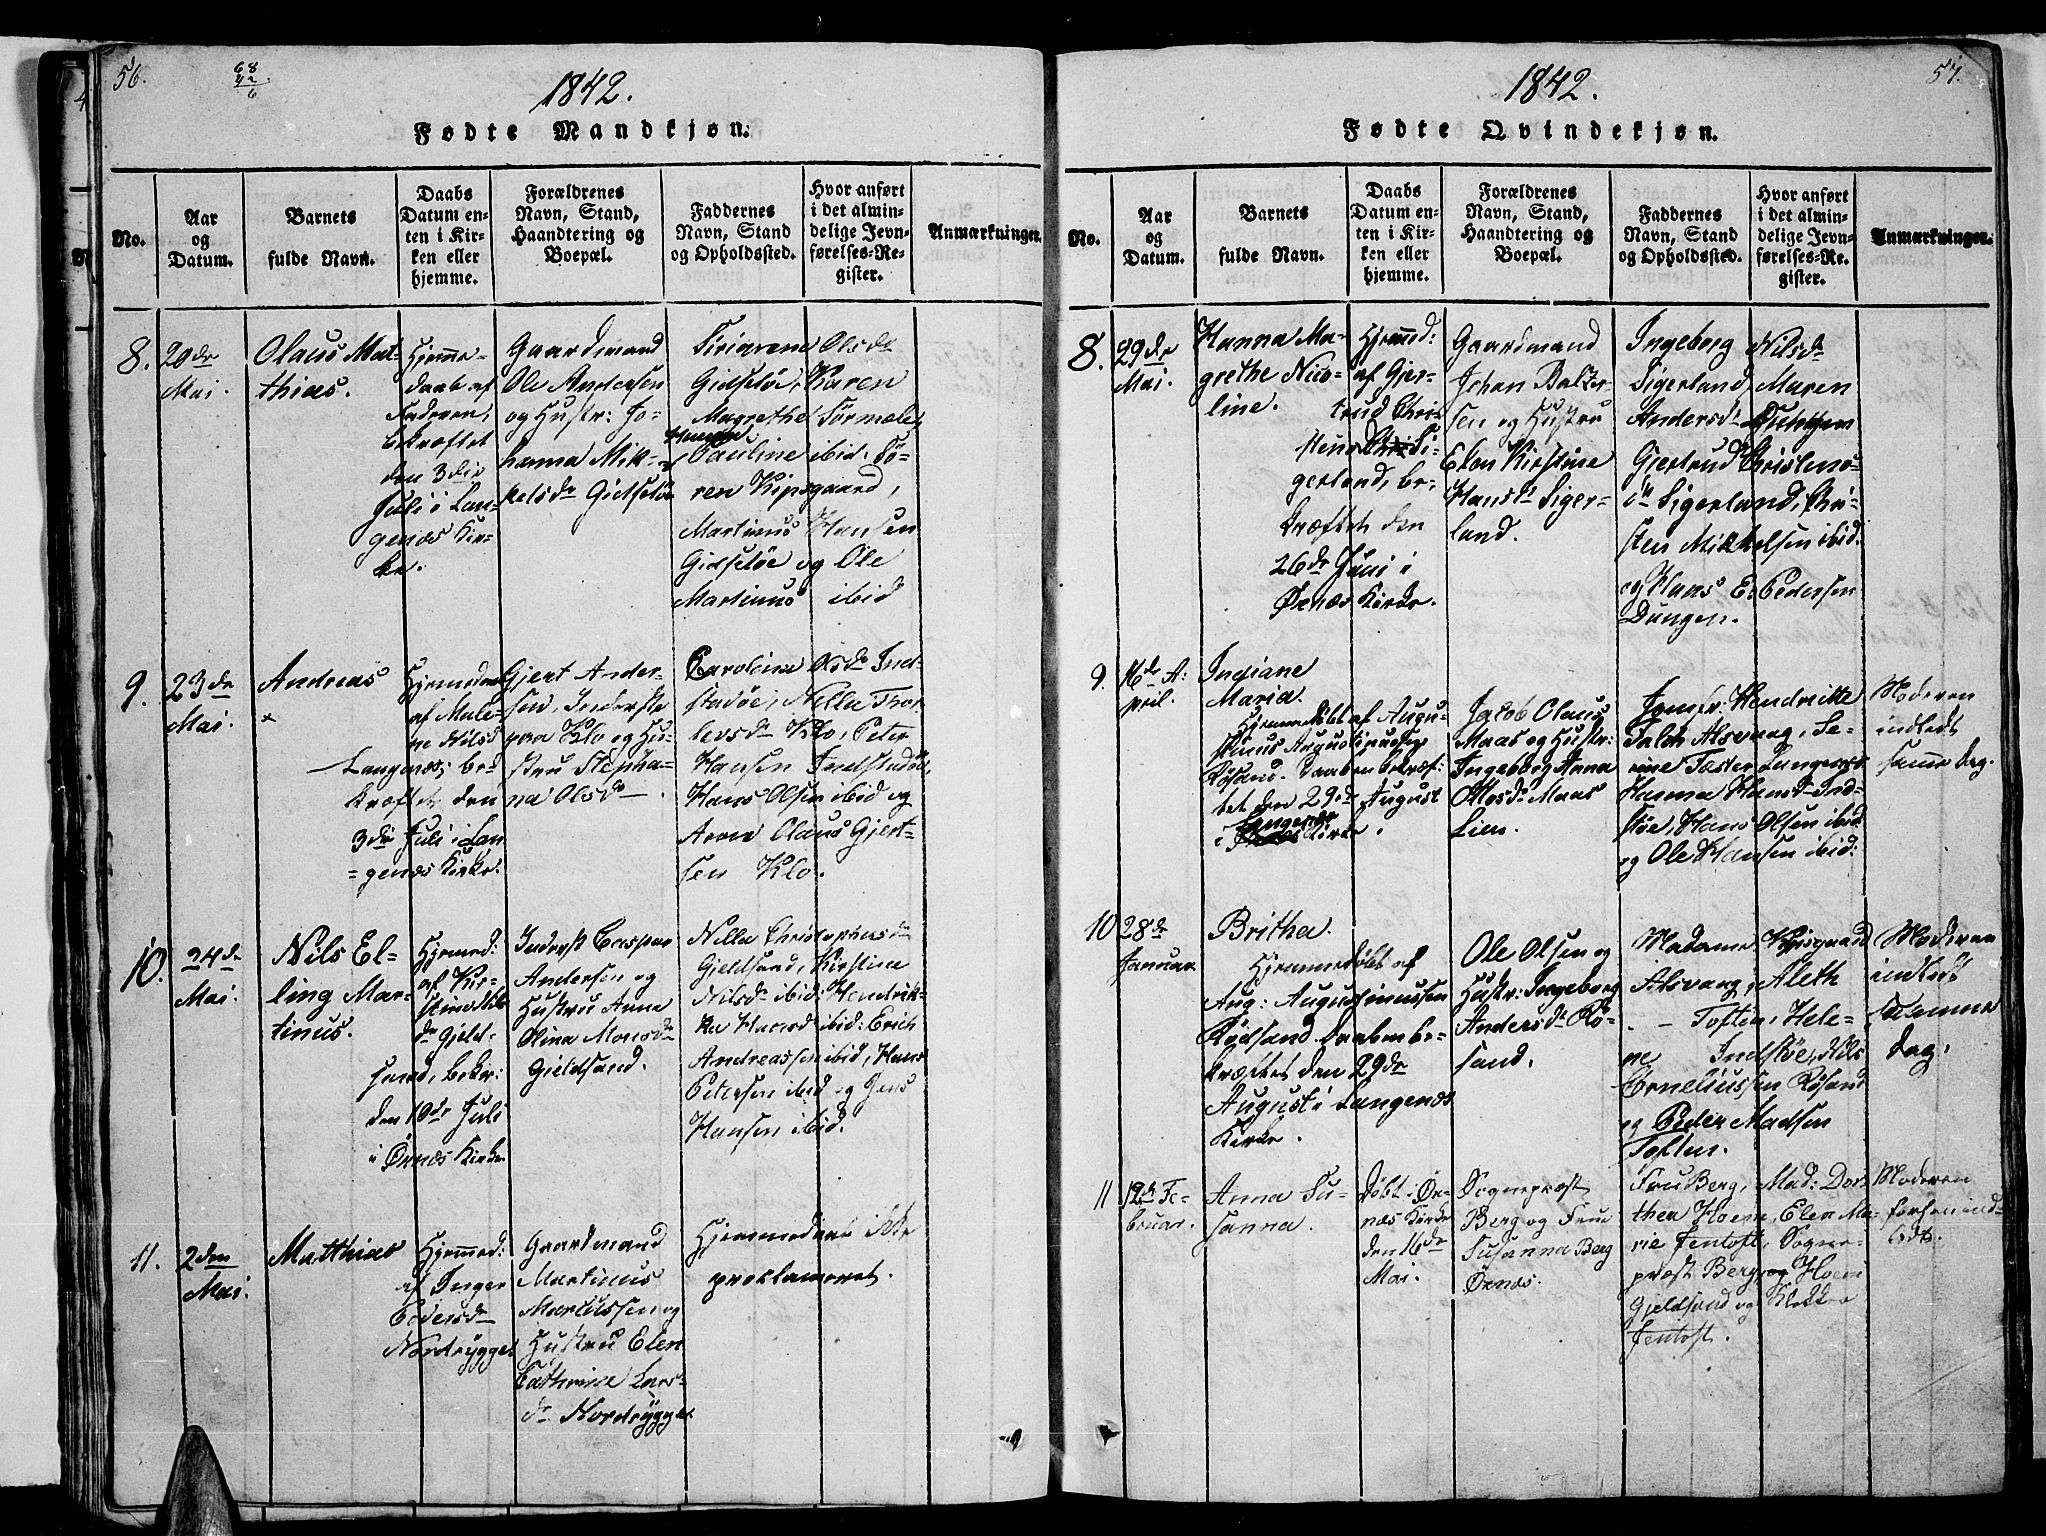 56.
68
42
6
1842.
Fødte Mandkjøn.
No.
Aar
og
Datum.
Barnets
fulde Navn.
Daabs
Datum en-
ten i Kir-
ken eller
hjemme.
Forældrenes
Navn, Stand,
Haandtering og
Boepæl.
Faddernes
Navn, Stand
og Opholdssted.
Hvor anført
i det almin-
delige Jevn-
førelses-Re-
gister.
Anmærkninger.
8.
20de
Mai.
Olaus Mat-
thias.
Hjemme-
daab af
Faderen,
bekræftet
den 3die
Juli i Lan-
genæs Kir-
ke.
Gaardmand
Ole Andersen
og Hustr: Jo-
hanna Mik-
kelsdr Gidsløe
Olsdr
Gidsløe, Karen
Magrethe
Hansdr
Pauline ibid: Sö-
ren Kipsgaard,
Martinus Hansen
Gidsløe og Ole
Martinus ibid
9.
23de
Mai.
Andreas
Hjemmed
af Male-
ne Nilsd
Langenæs, be-
kræftet den
3die Juli i Lan
=genæs Kirke.
Gjert Ander-
sen, Inderste
paa Klo og Hu-
stru Stepha-
na Olsdr
Carolina Olsdr Ind-
stadøe, Nella Thor
levsdr Klo, Peter
Hansen Indstadøe,
Hans Olsen ibid og
Aron Olaus Gjert-
sen Klo.
10.
24de
Mai.
Nils El-
ling Mar-
tinus.
Hjemmed:
af Kir-
stine Nils
dr Gjeld-
sand, bekr:
den 10de Juli
i Örnæs Kirke
Inderst Caspar
Andersen og
Hustru Anna
Olina Monsdr
Gjeldsand.
Nella Christophersdr
Gjeldsand, Kirstine
Nilsdr ibid: Hendrik-
ka Hansd ibid: Erich
Andreassen ibid, Hans
Petersen ibid og Jens
Hansen ibid.
11.
2den
Mai.
Matthias
Hjemmed:
af Inger
Pedersdr
Nordrygget
Gaardmand
Martinus
Marcussen og
Hustru Elen
Cathrine Lars-
dr Nordrygget
Hjemmedøbt ikke
proklameret.
57.
1842.
Fødte Qvindekjøn.
No.
Aar
og
Datum.
Barnets
fulde Navn.
Daabs
Datum en-
ten i Kir-
ken eller
hjemme.
Forældrenes
Navn, Stand,
Haandtering og
Boepæl.
Faddernes
Navn, Stand
og Opholdssted.
Hvor anført
i det almin-
delige Jevn-
førelses-Re-
gister.
Anmærkninger.
8.
29de
Mai.
Hanna Ma-
grethe Nico-
line.
Hjemmed:
af Gjer-
trud Chri
stensd Si-
gerland, be-
kræftet den
26de Juni i
Örnæs Kirke.
Gaardmand
Johan Balzer-
sen og Hustru
Elen Kirstine
Hansdr Siger-
land.
Ingeborg Nilsdr
Sigerland, Maren
Andersdr
Gjertrud Christens-
dr Sigerland, Chri-
sten Mikkelsen ibid.
og Hans E. Pedersen
Dungen.
9.
16de A:
pril.
Ingiane
Maria.
Hjemmedöbt af Augu-
stinus Augustinussen
Rösand. Daaben bekræf:
tet den 29de August
i Langenæs Kirke.
Jacob Olaus
Maas og Hustr:
Ingeborg Anna
Olsdr Maas
Lien.
Jomfr: Hendrikke
Falch Alsvaag, Se-
rine Langenæs
Hanna Hansdr Ind-
støe, Hans Olsen ibid
og Ole Hansen ibid:
Moderen
indledt
samme dag.
10
28de
Januar
Britha.
Hjemmedöbt af
Aug: Augustinussen
Rödsand. Daaben be-
kræftet den 29de
August i Langenæs
Kirke.
Ole Olsen og
Hustr: Ingeborg
Andersdr Rö-
sand.
Madame Kipsgaard
Alsvaag, Aleth
- Toften, Hele-
ne Indstøe, Nils
Corneliussen Rösand
og Peder Madsen
Toften.
Moderen
indledt
samme
dag.
11
12te Fe-
bruar.
Anna Su-
sanna.
Döbt i Ör-
næs Kirke
den 16de
Mai.
Sognepræst
Berg og Frue
Susanna Berg
Örnæs.
Fru Berg, Mad: Dor-
thea Hoem, Elen Ma-
rie Jentoft, Sogne-
præst Berg, og Hoem
Gjeldsand og Klokker
Jentoft.
Moderen
forhen ind-
ledt.